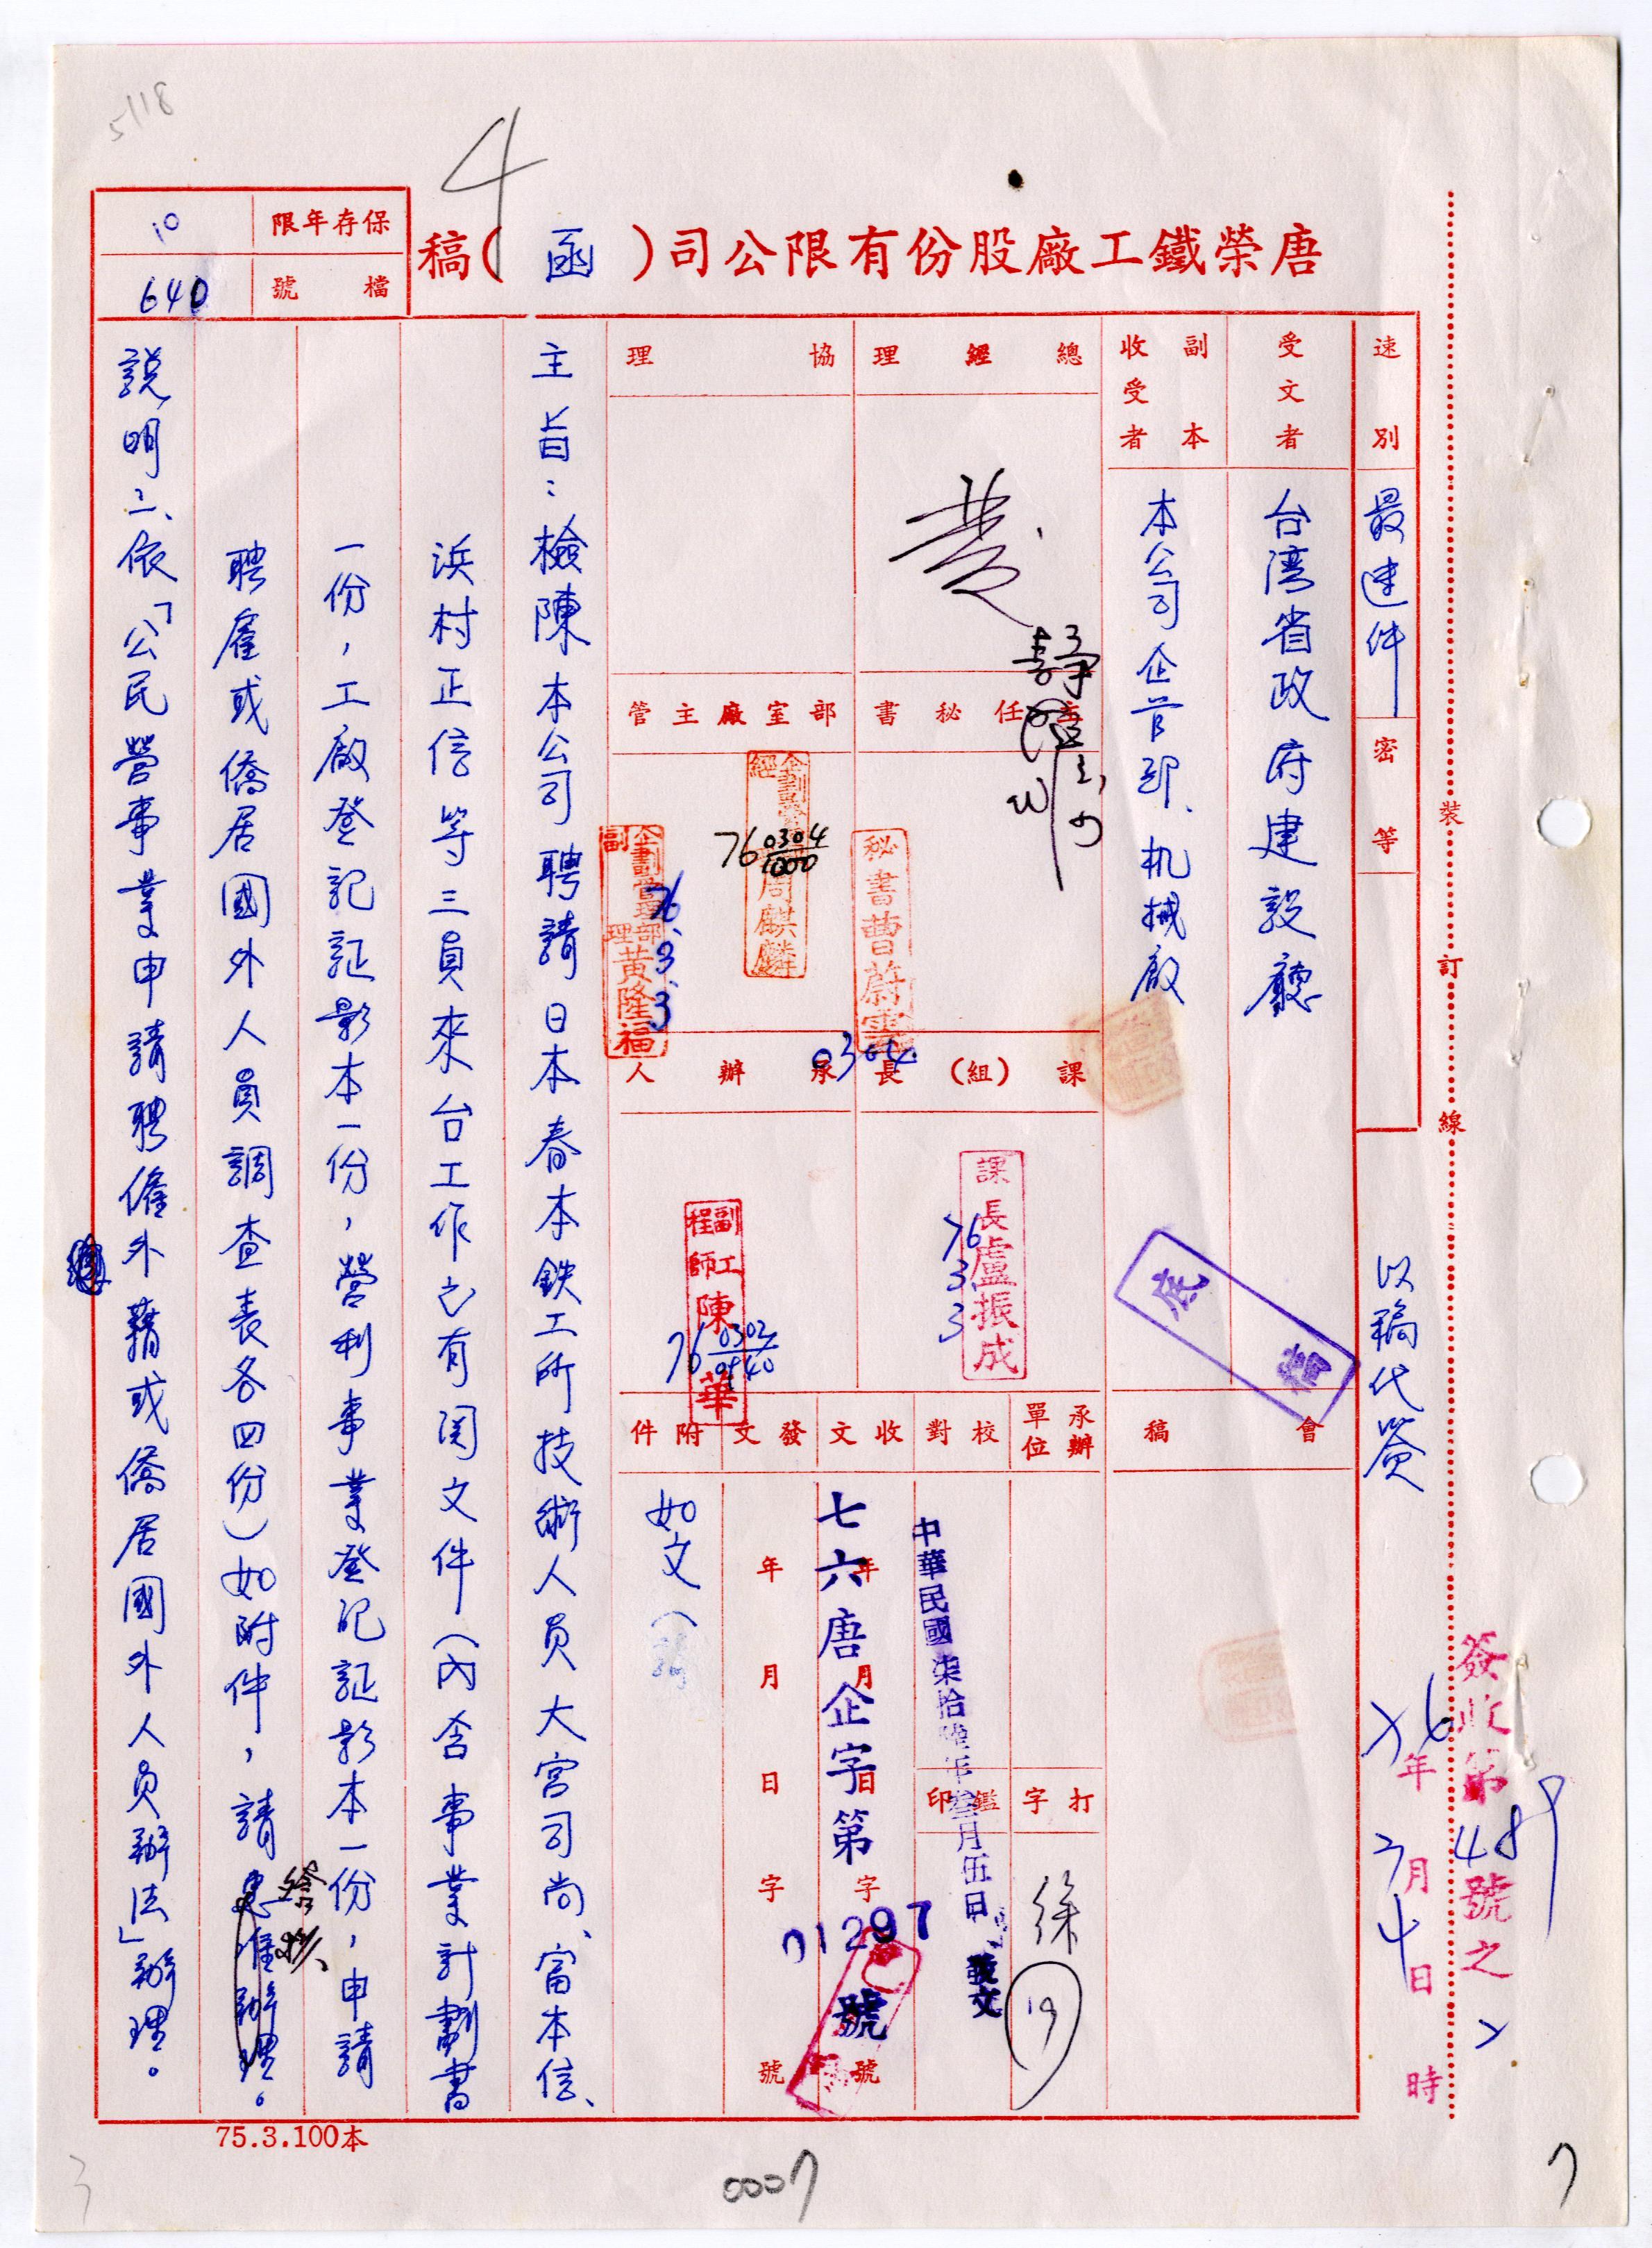 唐榮鐵工廠股份有限公司(函)稿
保存年限
10
檔號
640
5/18
4
裝
訂
線
速別
最速件
密等
以稿代簽
簽收第
號之
76年3月4日
時
受文者
台湾省政府建設廳
副本收受者
本公司企管部、机械廠
會稿
底稿
總經理
協理
主任秘書
部室廠主管
秘書曹蔚雲
0304
企劃
經
周麒麟
76 0304
1000
企劃管理部
副理
黃隆福
76.3.3
課(組)長
課長盧振成
76
3.
3
承辦人
副工程師
陳
華
76 0302
0940
承辦單位
校對
收文
發文
附件
打字
徐
19
鑑印
中華民國柒拾陸年叁月伍日
發文
七六唐企字第
01297
號
年月日字號
年月日字號
如文(
主旨:檢陳本公司聘請日本春本鉄工所技術人員大宮司尚、富本信、
浜村正信等三員來台工作之有関文件(內含事業計劃書
一份,工廠登記証影本一份,營利事業登記証影本一份,申請
聘雇或僑居國外人員調查表各四份)如附件,請惠准辦理。
給核
說明:一、依「公民營事業申請聘僱外籍或僑居國外人員辦法」辦理。
75.3.100本
0007
7
3